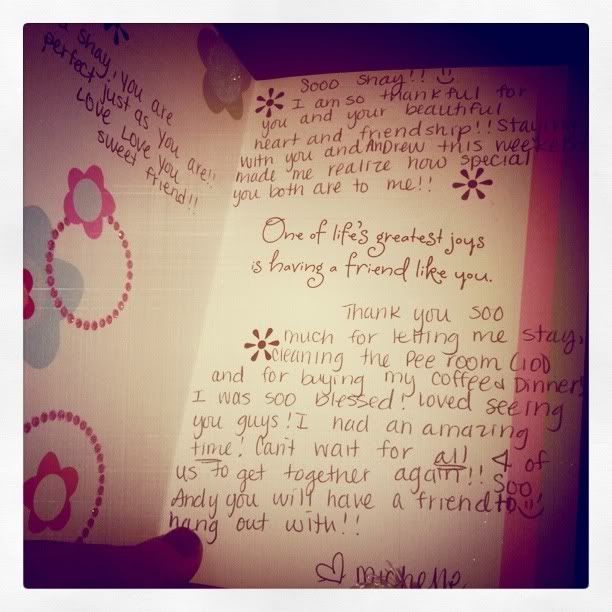 Shay, You are
perfect just as you are!!
Love Love you
sweet friend!!
Sooo Shay!!
I am so thankful for
you and your beautiful
heart and friendship!! Staying
with you and Andrew this weekend
made me realize how special
you both are to me!!
One of life's greatest joys
is having a friend like you.
Thank you soo
much for letting me stay,
cleaning the pee room LOD
and for buying my coffee & Dinner!
I was soo blessed! loved seeing
you guys! I had an amazing
time! Can't wait for all 4 of
us to get together again!! Soo
Andy you will have a friend to
hang out with!!
♡ Michelle